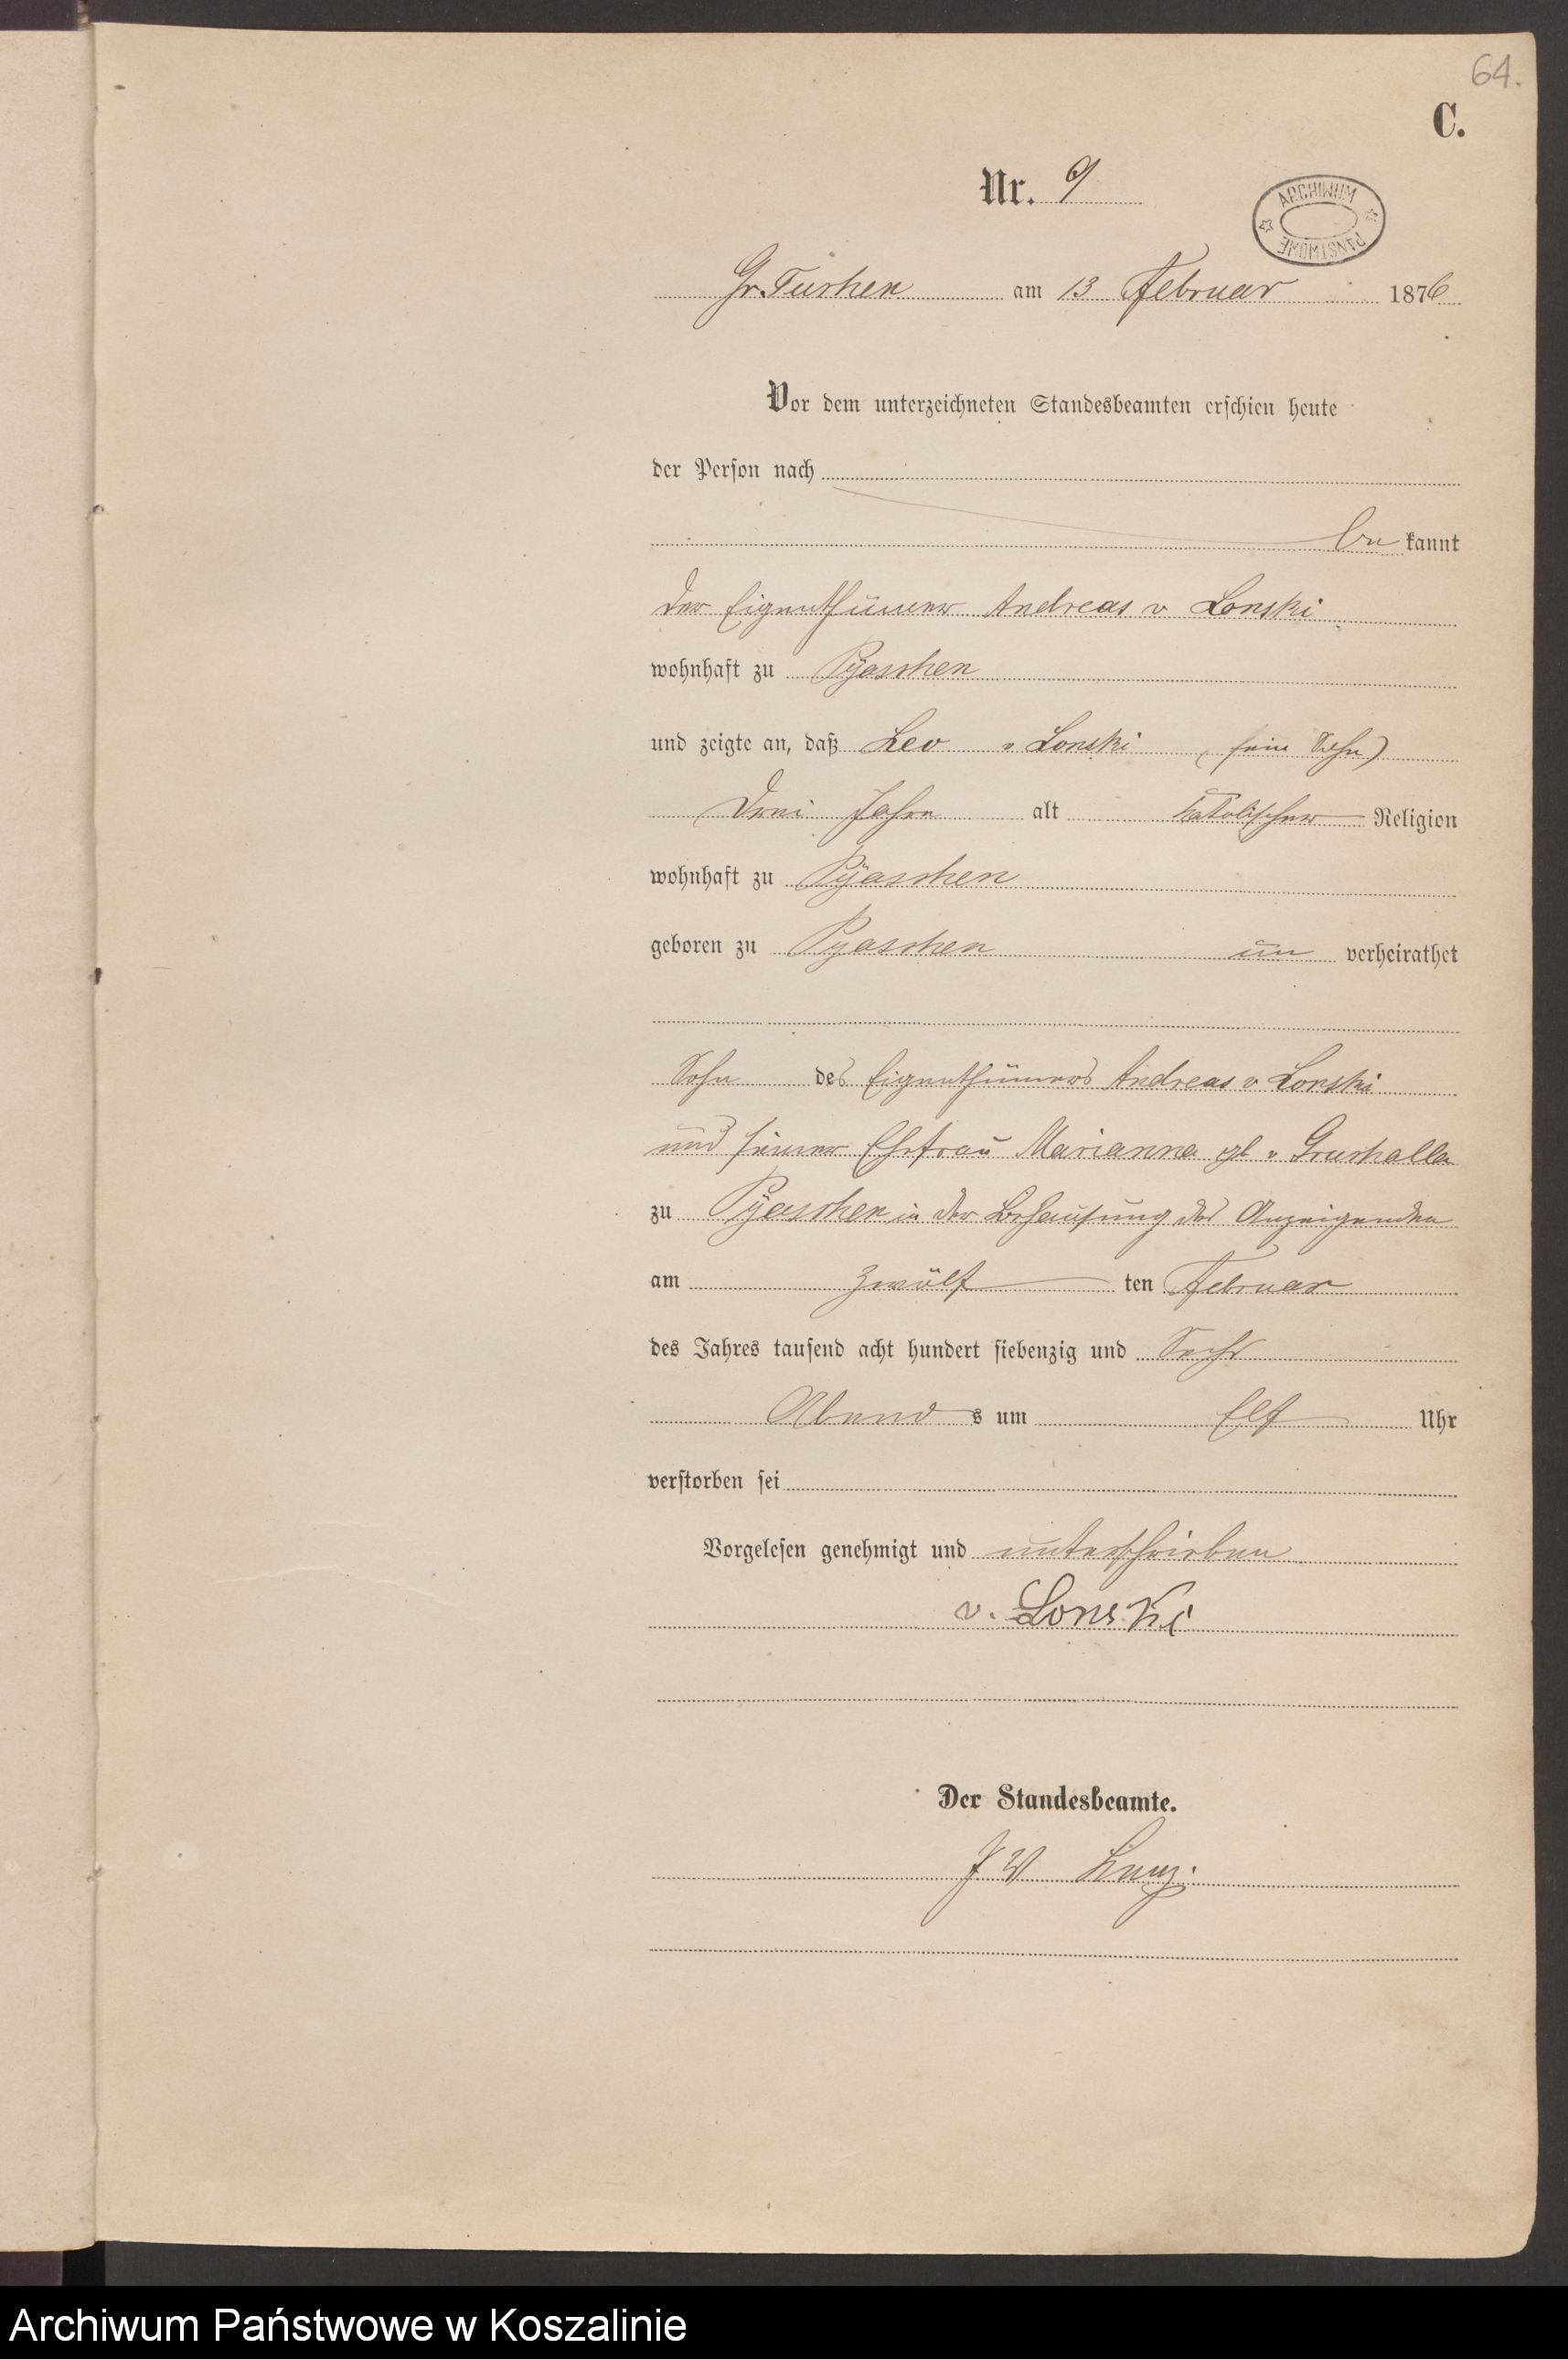 64.
C.
Nr. 9
ARCHIWUM PAŃSTWOWE
Gr. Tuchen am 13 Februar 1876
Vor dem unterzeichneten Standesbeamten erschien heute
der Person nach
be kannt
der Eigenthümer Andreas v Lonski
wohnhaft zu Pÿaschen
und zeigte an, daß Leo v Lonski (sein Sohn)
Drei Jahre alt katolischer Religion
wohnhaft zu Pÿaschen
geboren zu Pyaschen un verheirathet
Sohn des Eigenthümers Andreas v Lonski
und seiner Ehefrau Marianna gb v
zu Pÿaschen in der Behausung des Anzeigenden
am zwölf ten Februar
des Jahres tausend acht hundert siebenzig und Sechs
Abend s um Elf Uhr
verstorben sei
Vorgelesen genehmigt und unterschrieben
v. Lonski
Der Standesbeamte.
J W
Archiwum Państwowe w Koszalinie